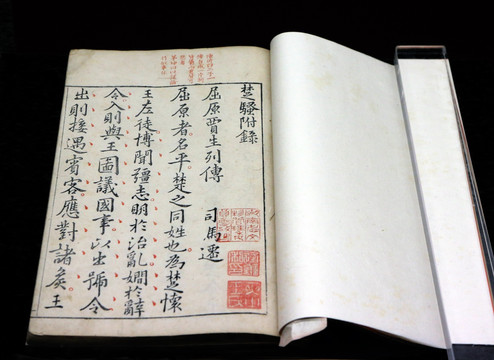 楚騷附錄
屈原賈生列傳 司馬遷
屈原者名平楚之同姓也為楚懷
王左徒博聞彊志明於治亂嫺於辭
令入則與王圖議國事以出號令
出則接遇賓客應對諸矦王